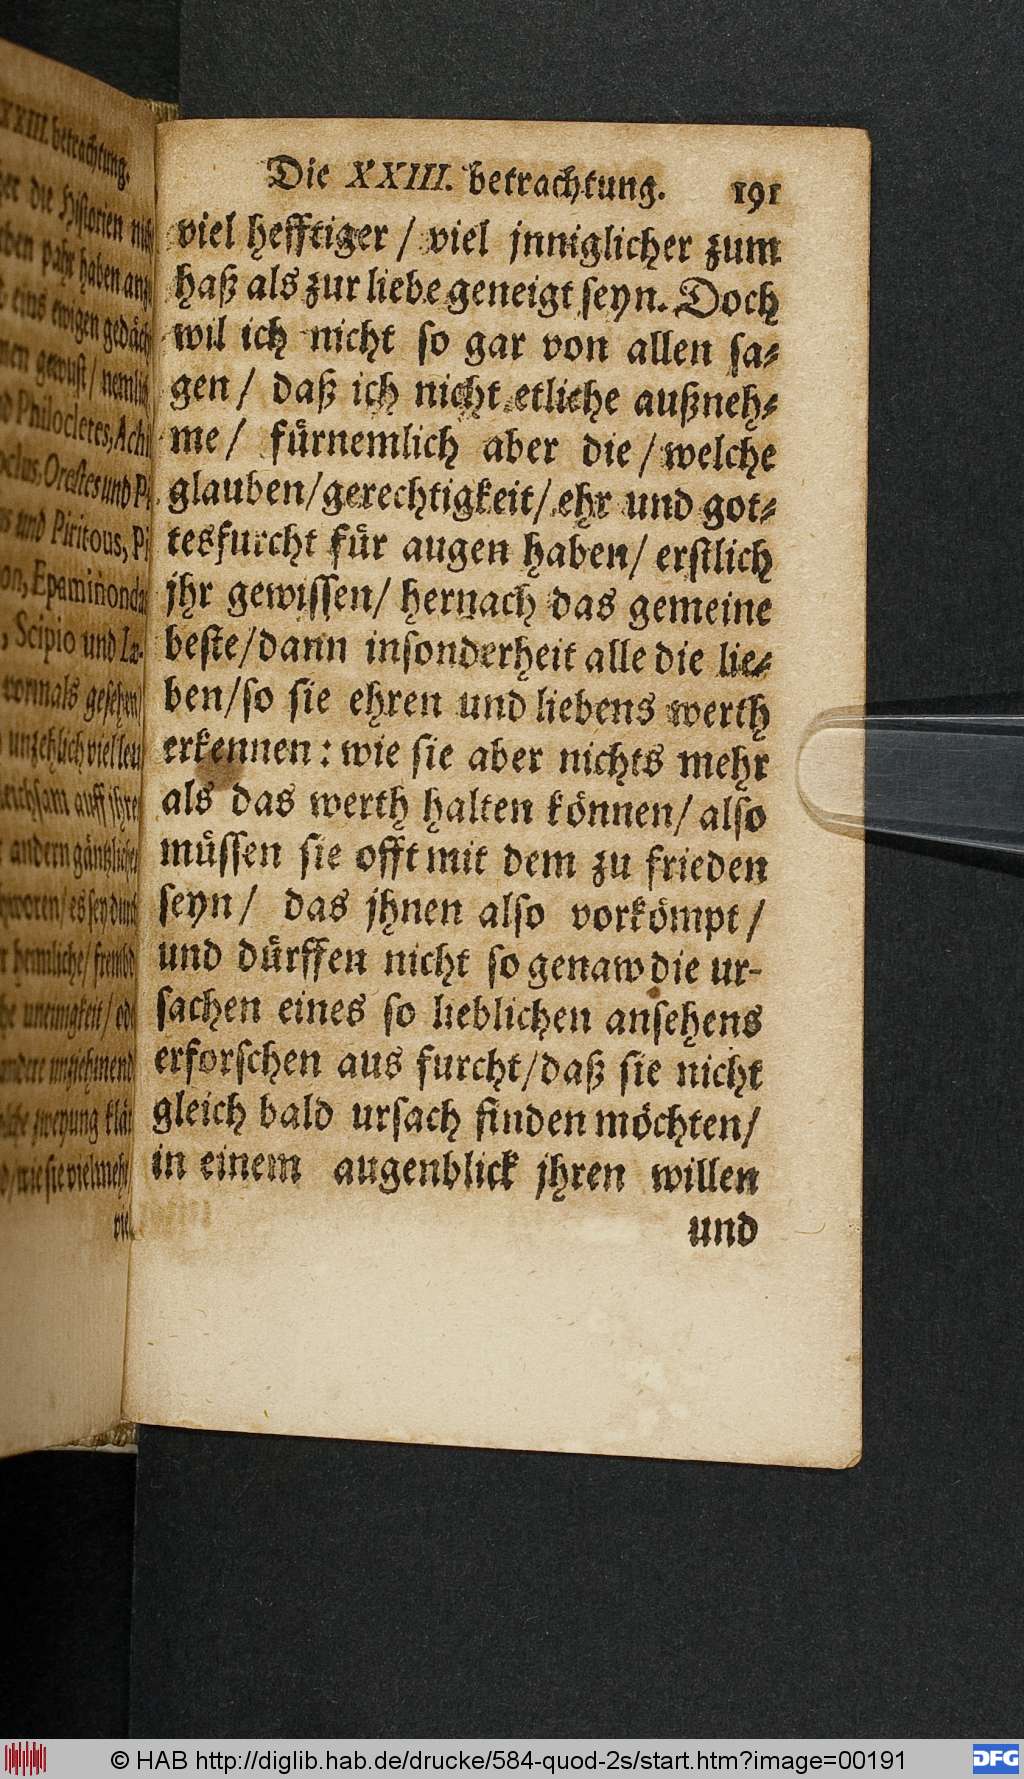 XXIII. betrachtung.
die Historien
haben
ewigen
Philocletes,
Orestes und
und Piritous,
Epaminond
Scipio und Læ-
vormals gesehen
unzehlich viel
auff
andern
vie-
Die XXIII. betrachtung. 191
viel hefftiger / viel jnniglicher zum
haß als zur liebe geneigt seyn. Doch
wil ich nicht so gar von allen sa-
gen / daß ich nicht etliche außneh-
me / fürnemlich aber die / welche
glauben / gerechtigkeit / ehr und got-
tesfurcht für augen haben / erstlich
jhr gewissen / hernach das gemeine
beste / dann insonderheit alle die lie-
ben / so sie ehren und liebens werth
erkennen : wie sie aber nichts mehr
als das werth halten können / also
müssen sie offt mit dem zu frieden
seyn / das jhnen also vorkömpt /
und dürffen nicht so genaw die ur-
sachen eines so lieblichen ansehens
erforschen aus furcht / daß sie nicht
gleich bald ursach finden möchten /
in einem augenblick jhren willen
und
© HAB http://diglib.hab.de/drucke/584-quod-2s/start.htm?image=00191
DFG